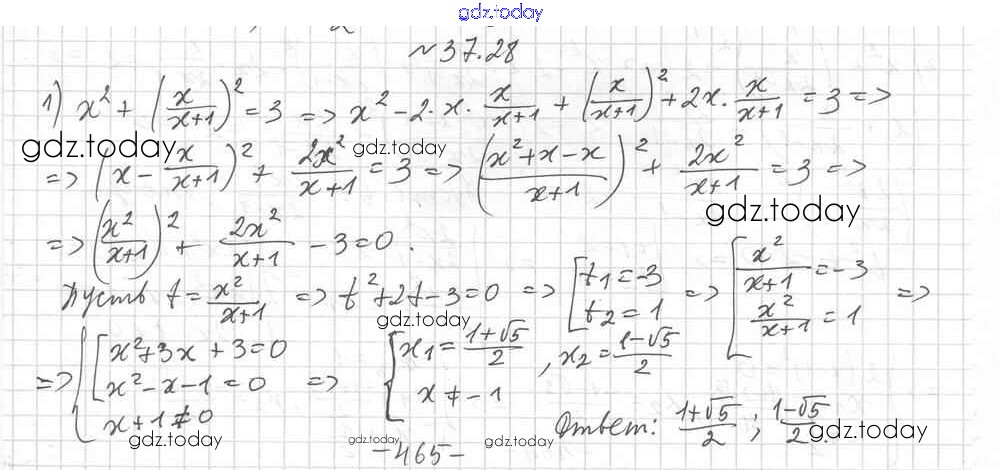 gdz.today
№37.28
1) x² + (x/(x+1))² = 3 => x² - 2·x·x/(x+1) + (x/(x+1))² + 2x·x/(x+1) = 3 =>
gdz.today gdz.today
=> (x - x/(x+1))² + 2x²/(x+1) = 3 => ((x²+x-x)/(x+1))² + 2x²/(x+1) = 3 =>
gdz.today
=> (x²/(x+1))² + 2x²/(x+1) - 3 = 0.
Пусть t = x²/(x+1) => t² + 2t - 3 = 0 => [t₁ = -3; t₂ = 1 => [x²/(x+1) = -3; x²/(x+1) = 1 =>
gdz.today
=> {[x² + 3x + 3 = 0; x² - x - 1 = 0; x + 1 ≠ 0 => [x₁ = (1+√5)/2, x₂ = (1-√5)/2; x ≠ -1
Ответ: (1+√5)/2; (1-√5)/2.
gdz.today gdz.today gdz.today gdz.today
-465-